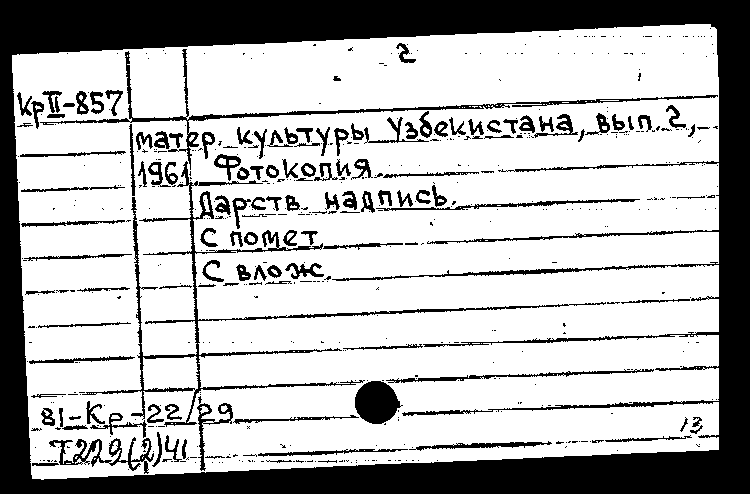 2
КрII-857
матер. культуры Узбекистана, вып. 2,
1961. Фотокопия.
Дарств. надпись.
С помет.
С влож.
81-Кр-22/29
Т229(2)41
13